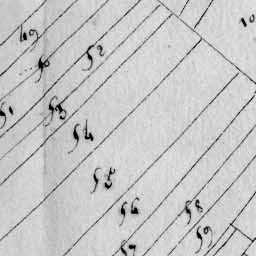 49
50
52
51
53
54
55
56
58
59
57
10